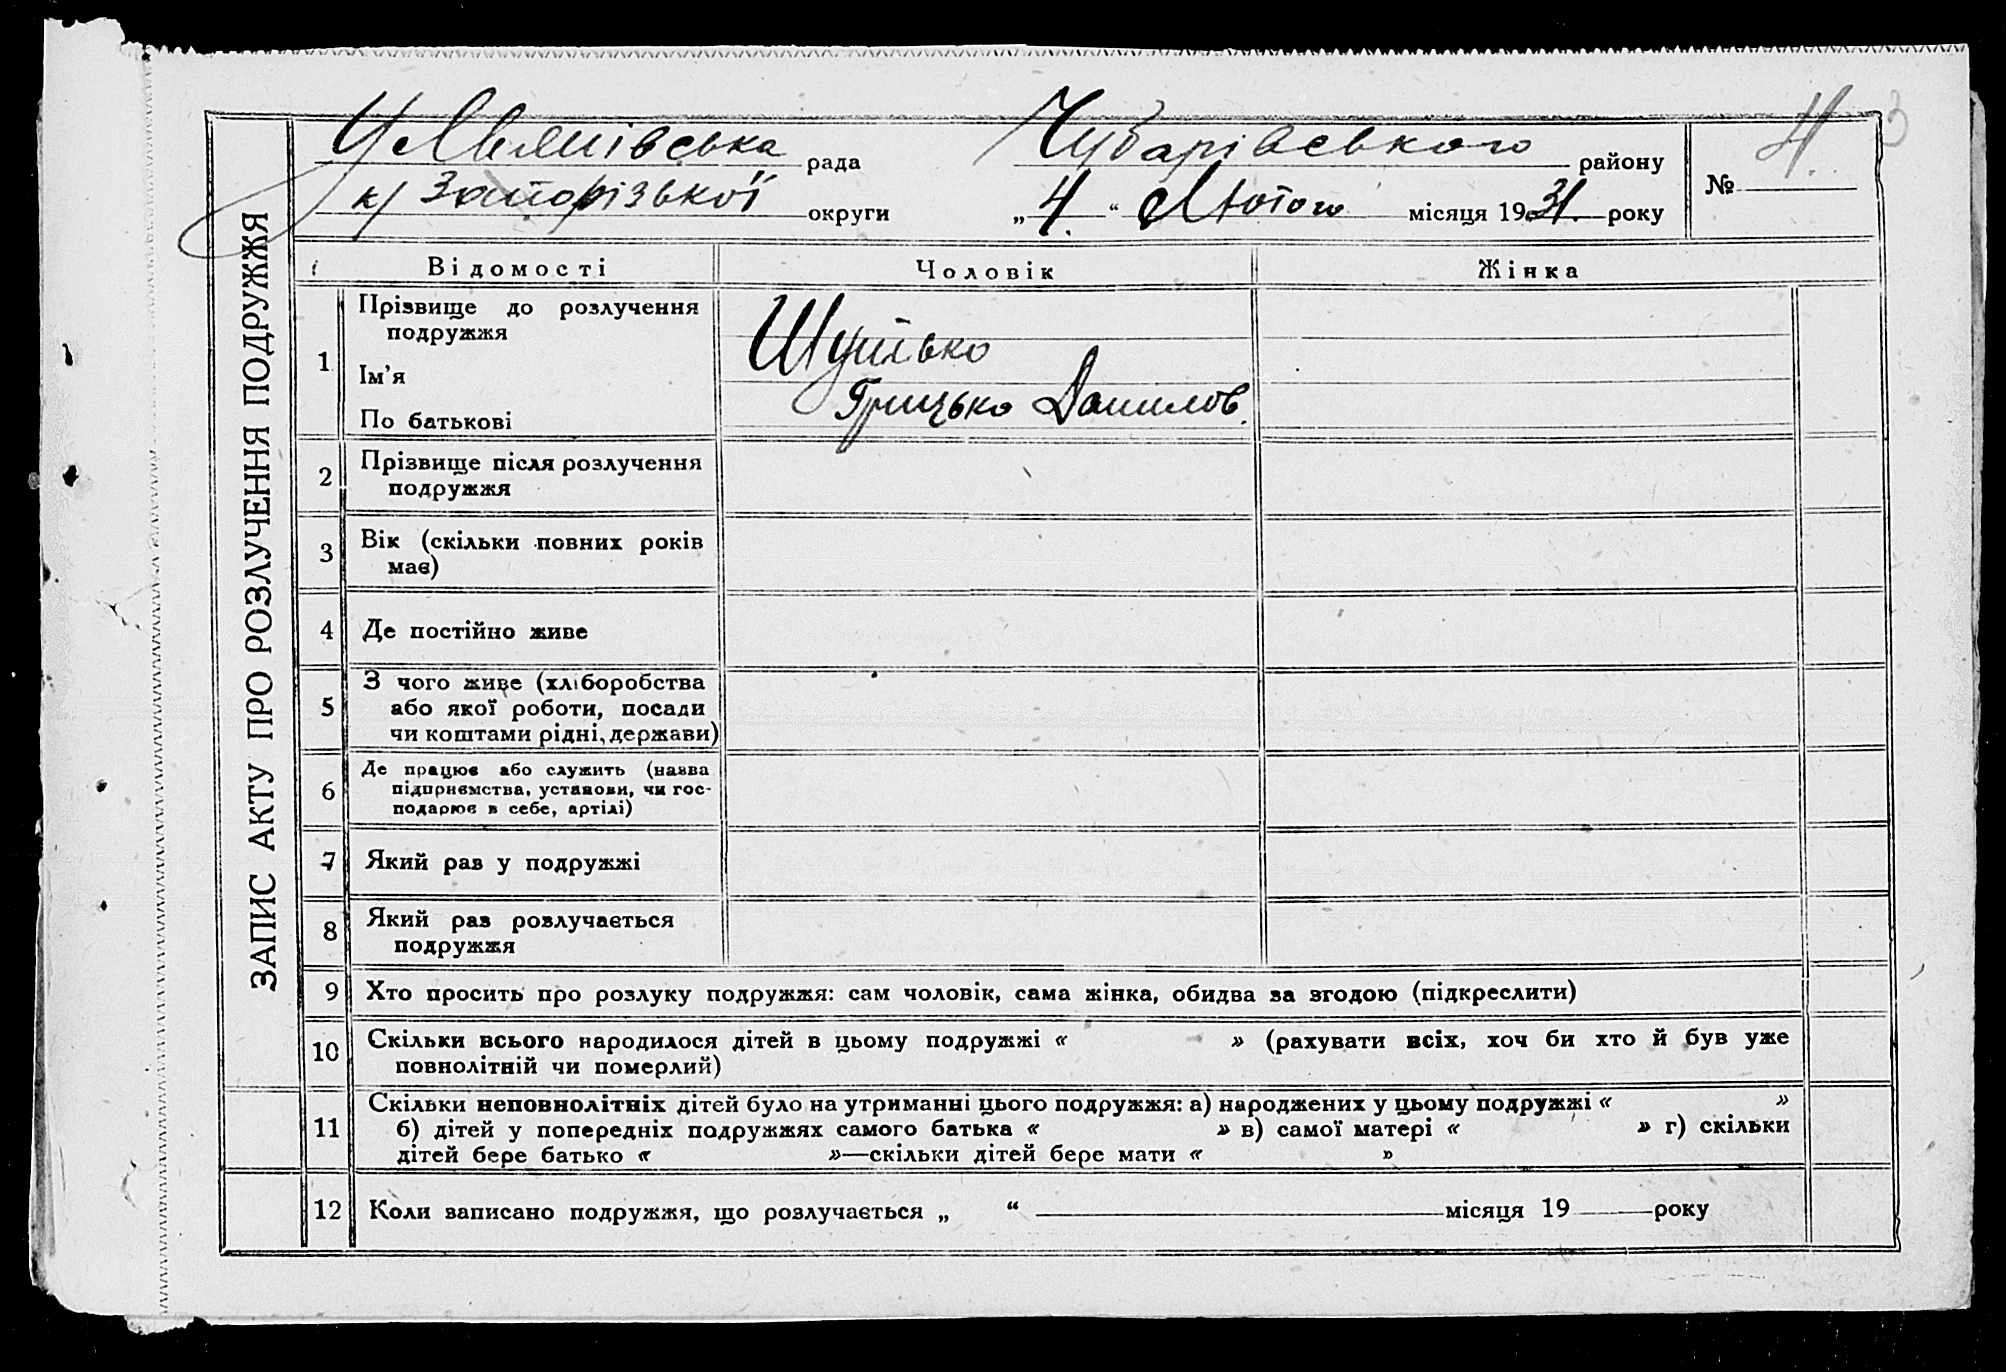 ЗАПИС АКТУ ПРО РОЗЛУЧЕННЯ ПОДРУЖЖЯ
рада Чубарівського району
к/ Запорізької округи „4.“ Лютого місяця 1931. року
№ 4.
3
Відомості Чоловік Жінка
1 Прізвище до розлучення
подружжя
Ім’я
По батькові
Грицько Данилов.
2 Прізвище після розлучення
подружжя
3 Вік (скільки повних років
має)
4 Де постійно живе
5 З чого живе (хліборобства
або якої роботи, посади
чи коштами рідні, держави)
6 Де працює або служить (назва
підприємства, установи, чи гос-
подарює в себе, артілі)
7 Який раз у подружжі
8 Який раз розлучається
подружжя
9 Хто просить про розлуку подружжя: сам чоловік, сама жінка, обидва за згодою (підкреслити)
10 Скільки всього народилося дітей в цьому подружжі « » (рахувати всіх, хоч би хто й був уже
повнолітній чи померлий)
11 Скільки неповнолітніх дітей було на утриманні цього подружжя: а) народжених у цьому подружжі « »
б) дітей у попередніх подружжях самого батька « » в) самої матері « » г) скільки
дітей бере батько « »—скільки дітей бере мати « »
12 Коли записано подружжя, що розлучається „ “ місяця 19 року